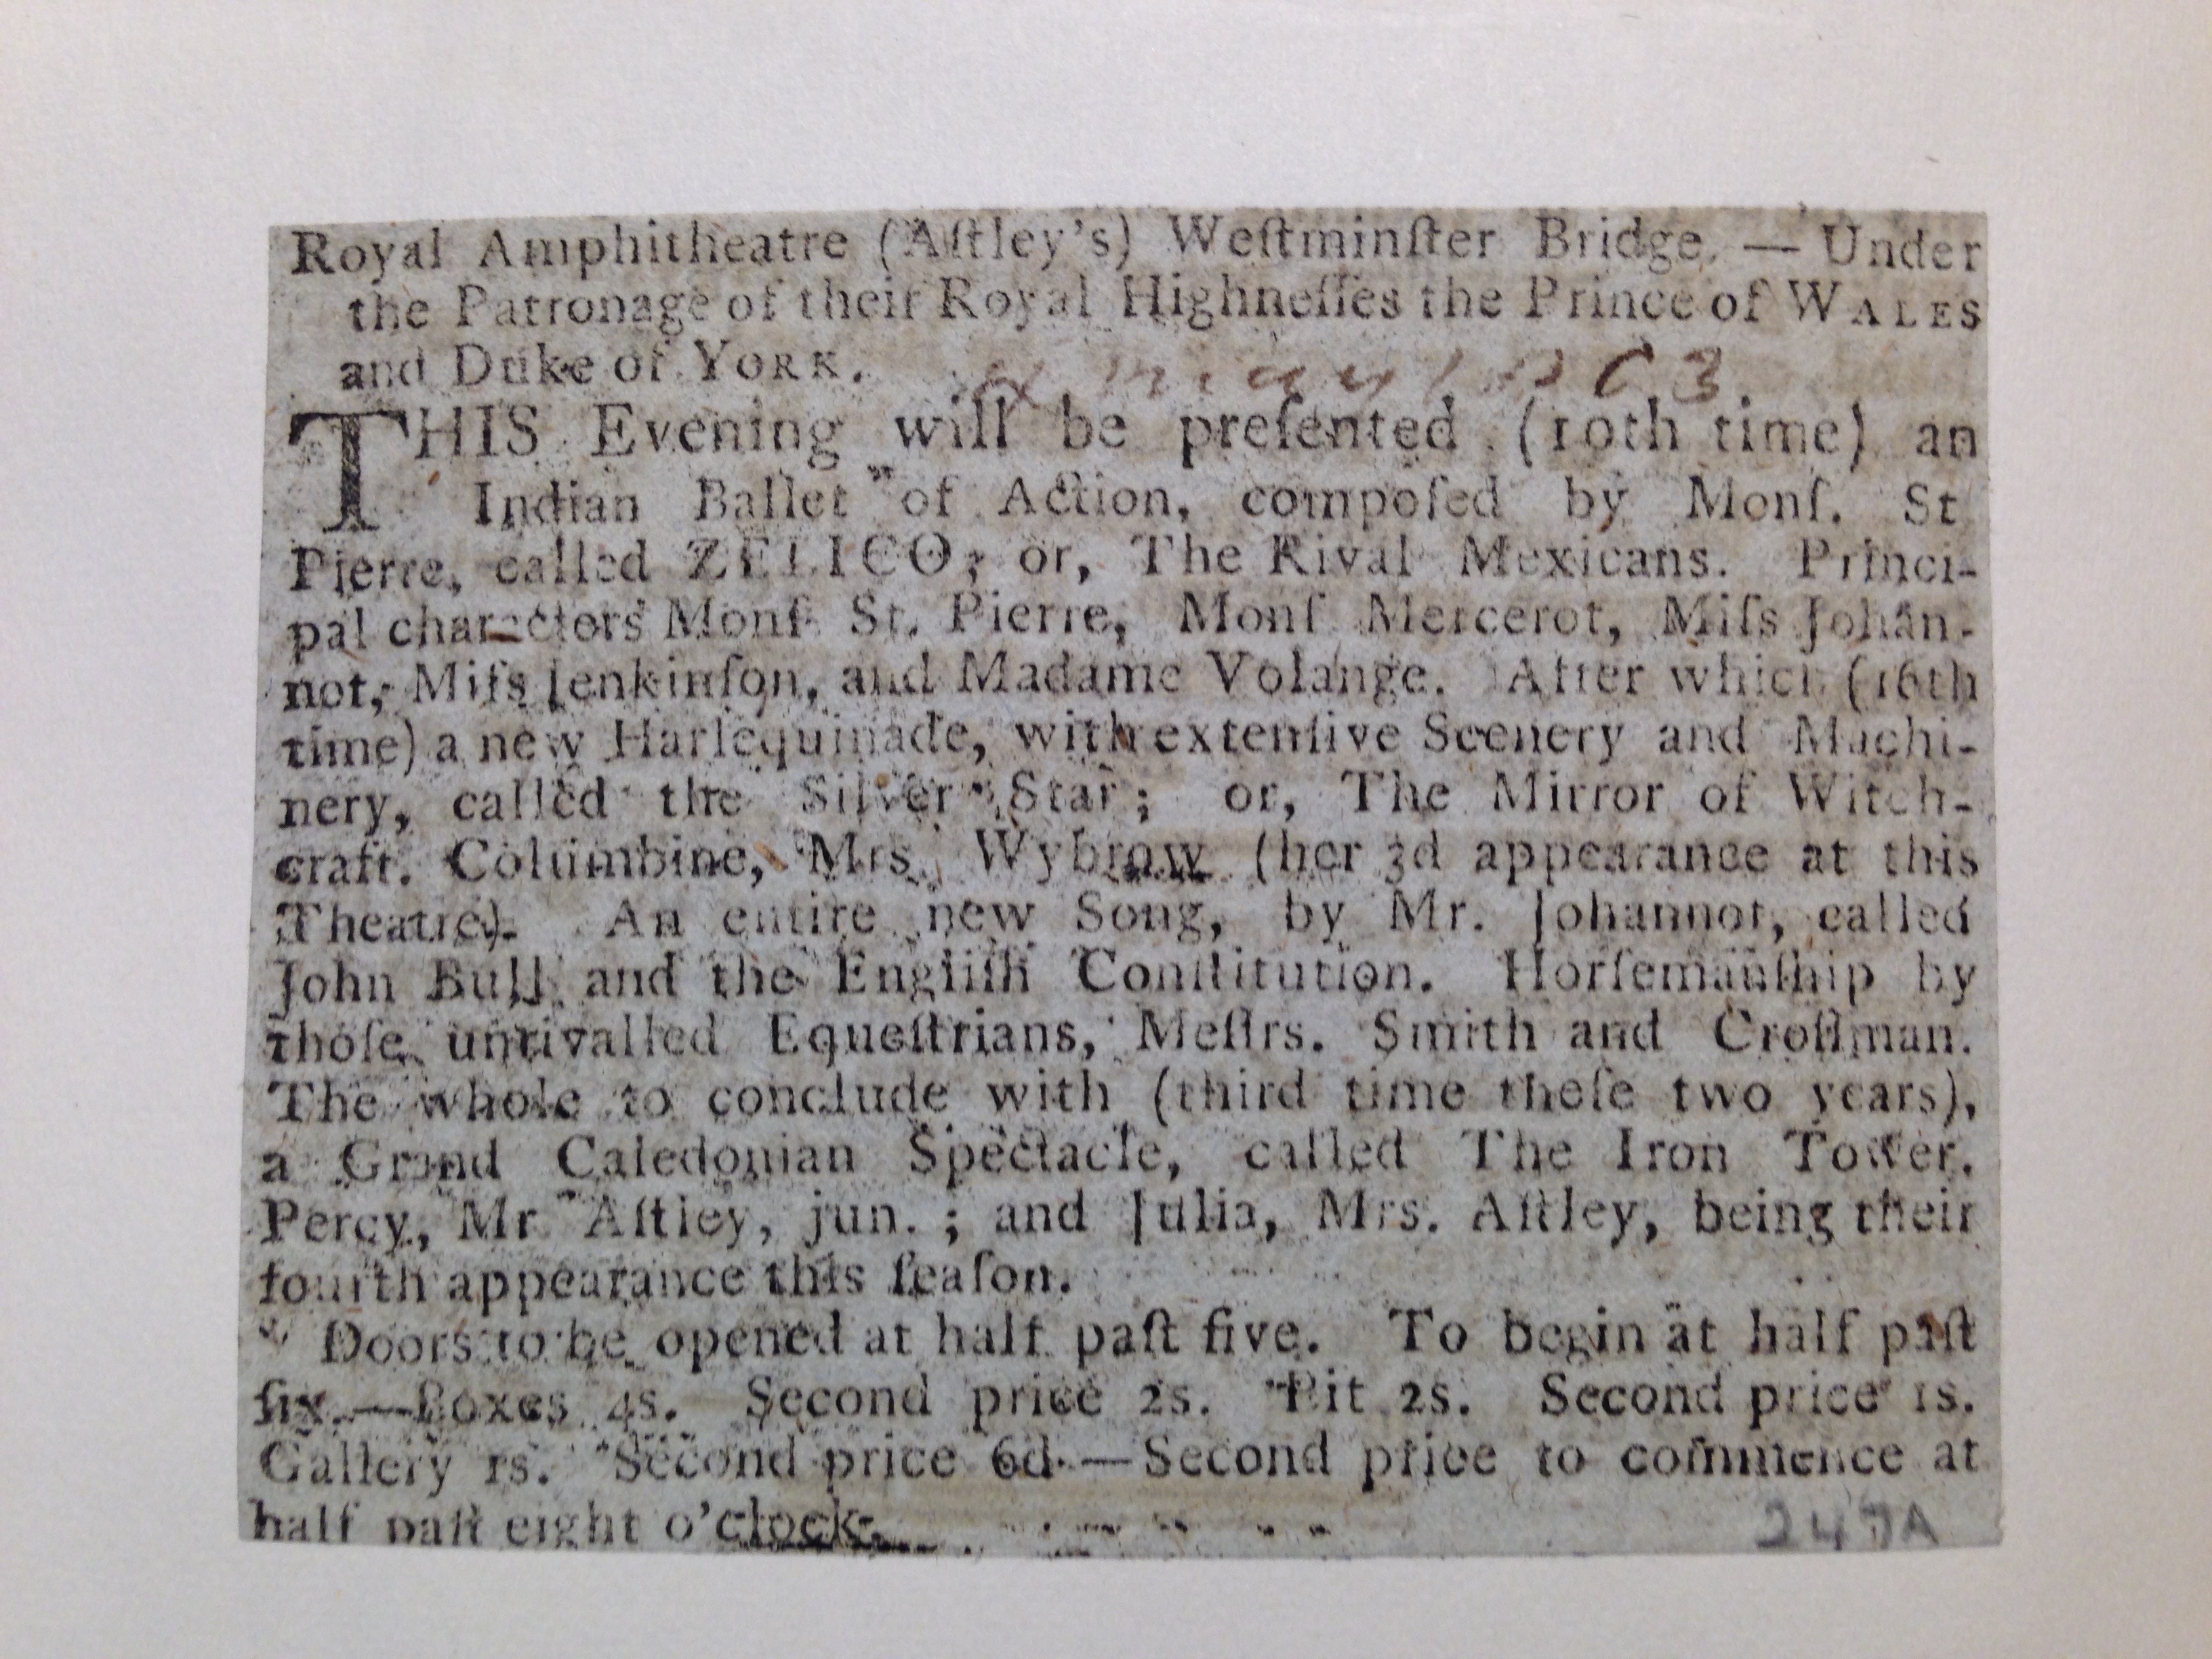 Royal Amphitheatre (Aſtley's) Weſtminſter Bridge. — Under
the Patronage of their Royal Highneſſes the Prince of WALES
and Duke of YORK.
may 1803
THIS Evening will be preſented (10th time) an
Indian Ballet of Action, compoſed by Monſ. St
Pierre, called ZELICO; or, The Rival Mexicans. Princi-
pal characters Monſ St. Pierre, Monſ Mercerot, Miſs Johan-
not, Miſs Jenkinſon, and Madame Volange. After which (16th
time) a new Harlequinade, with extenſive Scenery and Machi-
nery, called the Silver Star; or, The Mirror of Witch-
craft. Columbine, Mrs. Wybrow (her 3d appearance at this
Theatre). An entire new Song, by Mr. Johannot, called
John Bull and the Engliſh Conſtitution. Horſemanſhip by
thoſe unrivalled Equeſtrians, Meſſrs. Smith and Croſſman.
The whole to conclude with (third time theſe two years),
a Grand Caledonian Spectacle, called The Iron Tower.
Percy, Mr Aſtley, jun.; and Julia, Mrs. Aſtley, being their
fourth appearance this ſeaſon.
Doors to be opened at half paſt five. To begin at half paſt
ſix.—Boxes 4s. Second price 2s. Pit 2s. Second price 1s.
Gallery 1s. Second price 6d.—Second price to commence at
half paſt eight o'clock.
247A